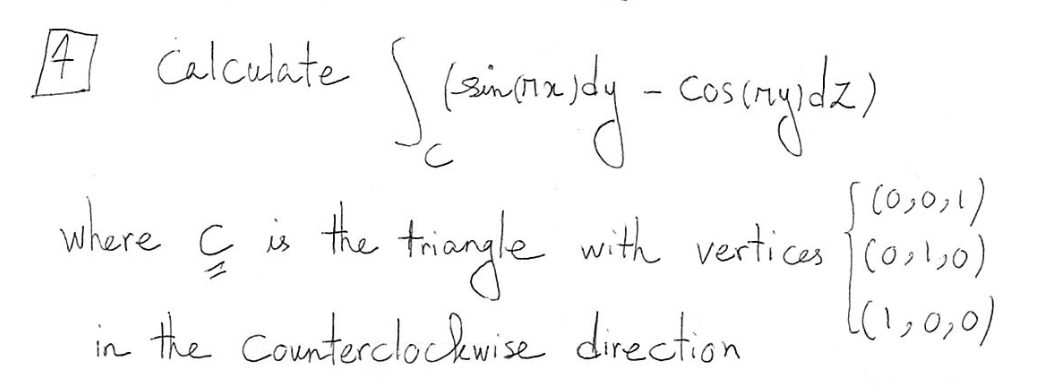 4 Calculate ∫_C (sin(πx)dy - cos(πy)dz)
where C is the triangle with vertices { (0,0,1) (0,1,0) (1,0,0)
in the counterclockwise direction